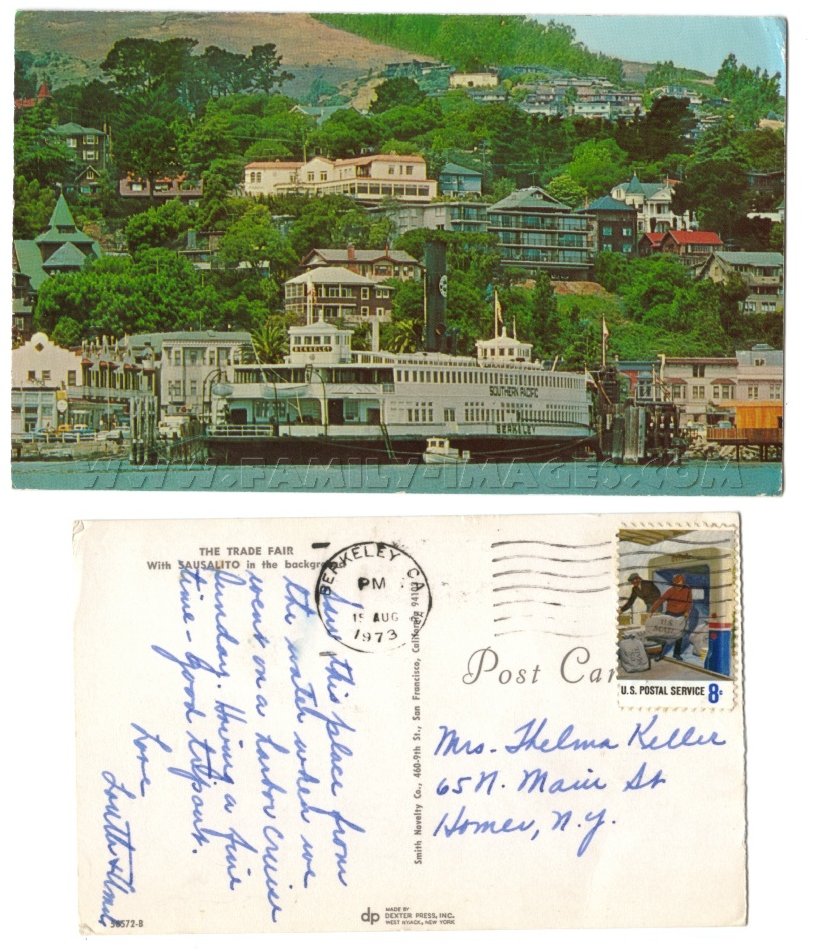 BERKELEY
SOUTHERN PACIFIC
BERKELEY
WWW.FAMILY-IMAGES.COM
THE TRADE FAIR
With SAUSALITO in the background
BERKELEY, CA
PM
15 AUG
1973
U.S. POSTAL SERVICE 8¢
Post Car
Saw this place from
the water when we
went on a harbor cruise
Sunday. Having a fine
time - Good trip out.
Love
Mrs. Thelma Keller
65 N. Main St
Homer, N.Y.
Smith Novelty Co., 460-9th St., San Francisco, California 94103
dp MADE BY
DEXTER PRESS, INC.
WEST NYACK, NEW YORK
58572-B